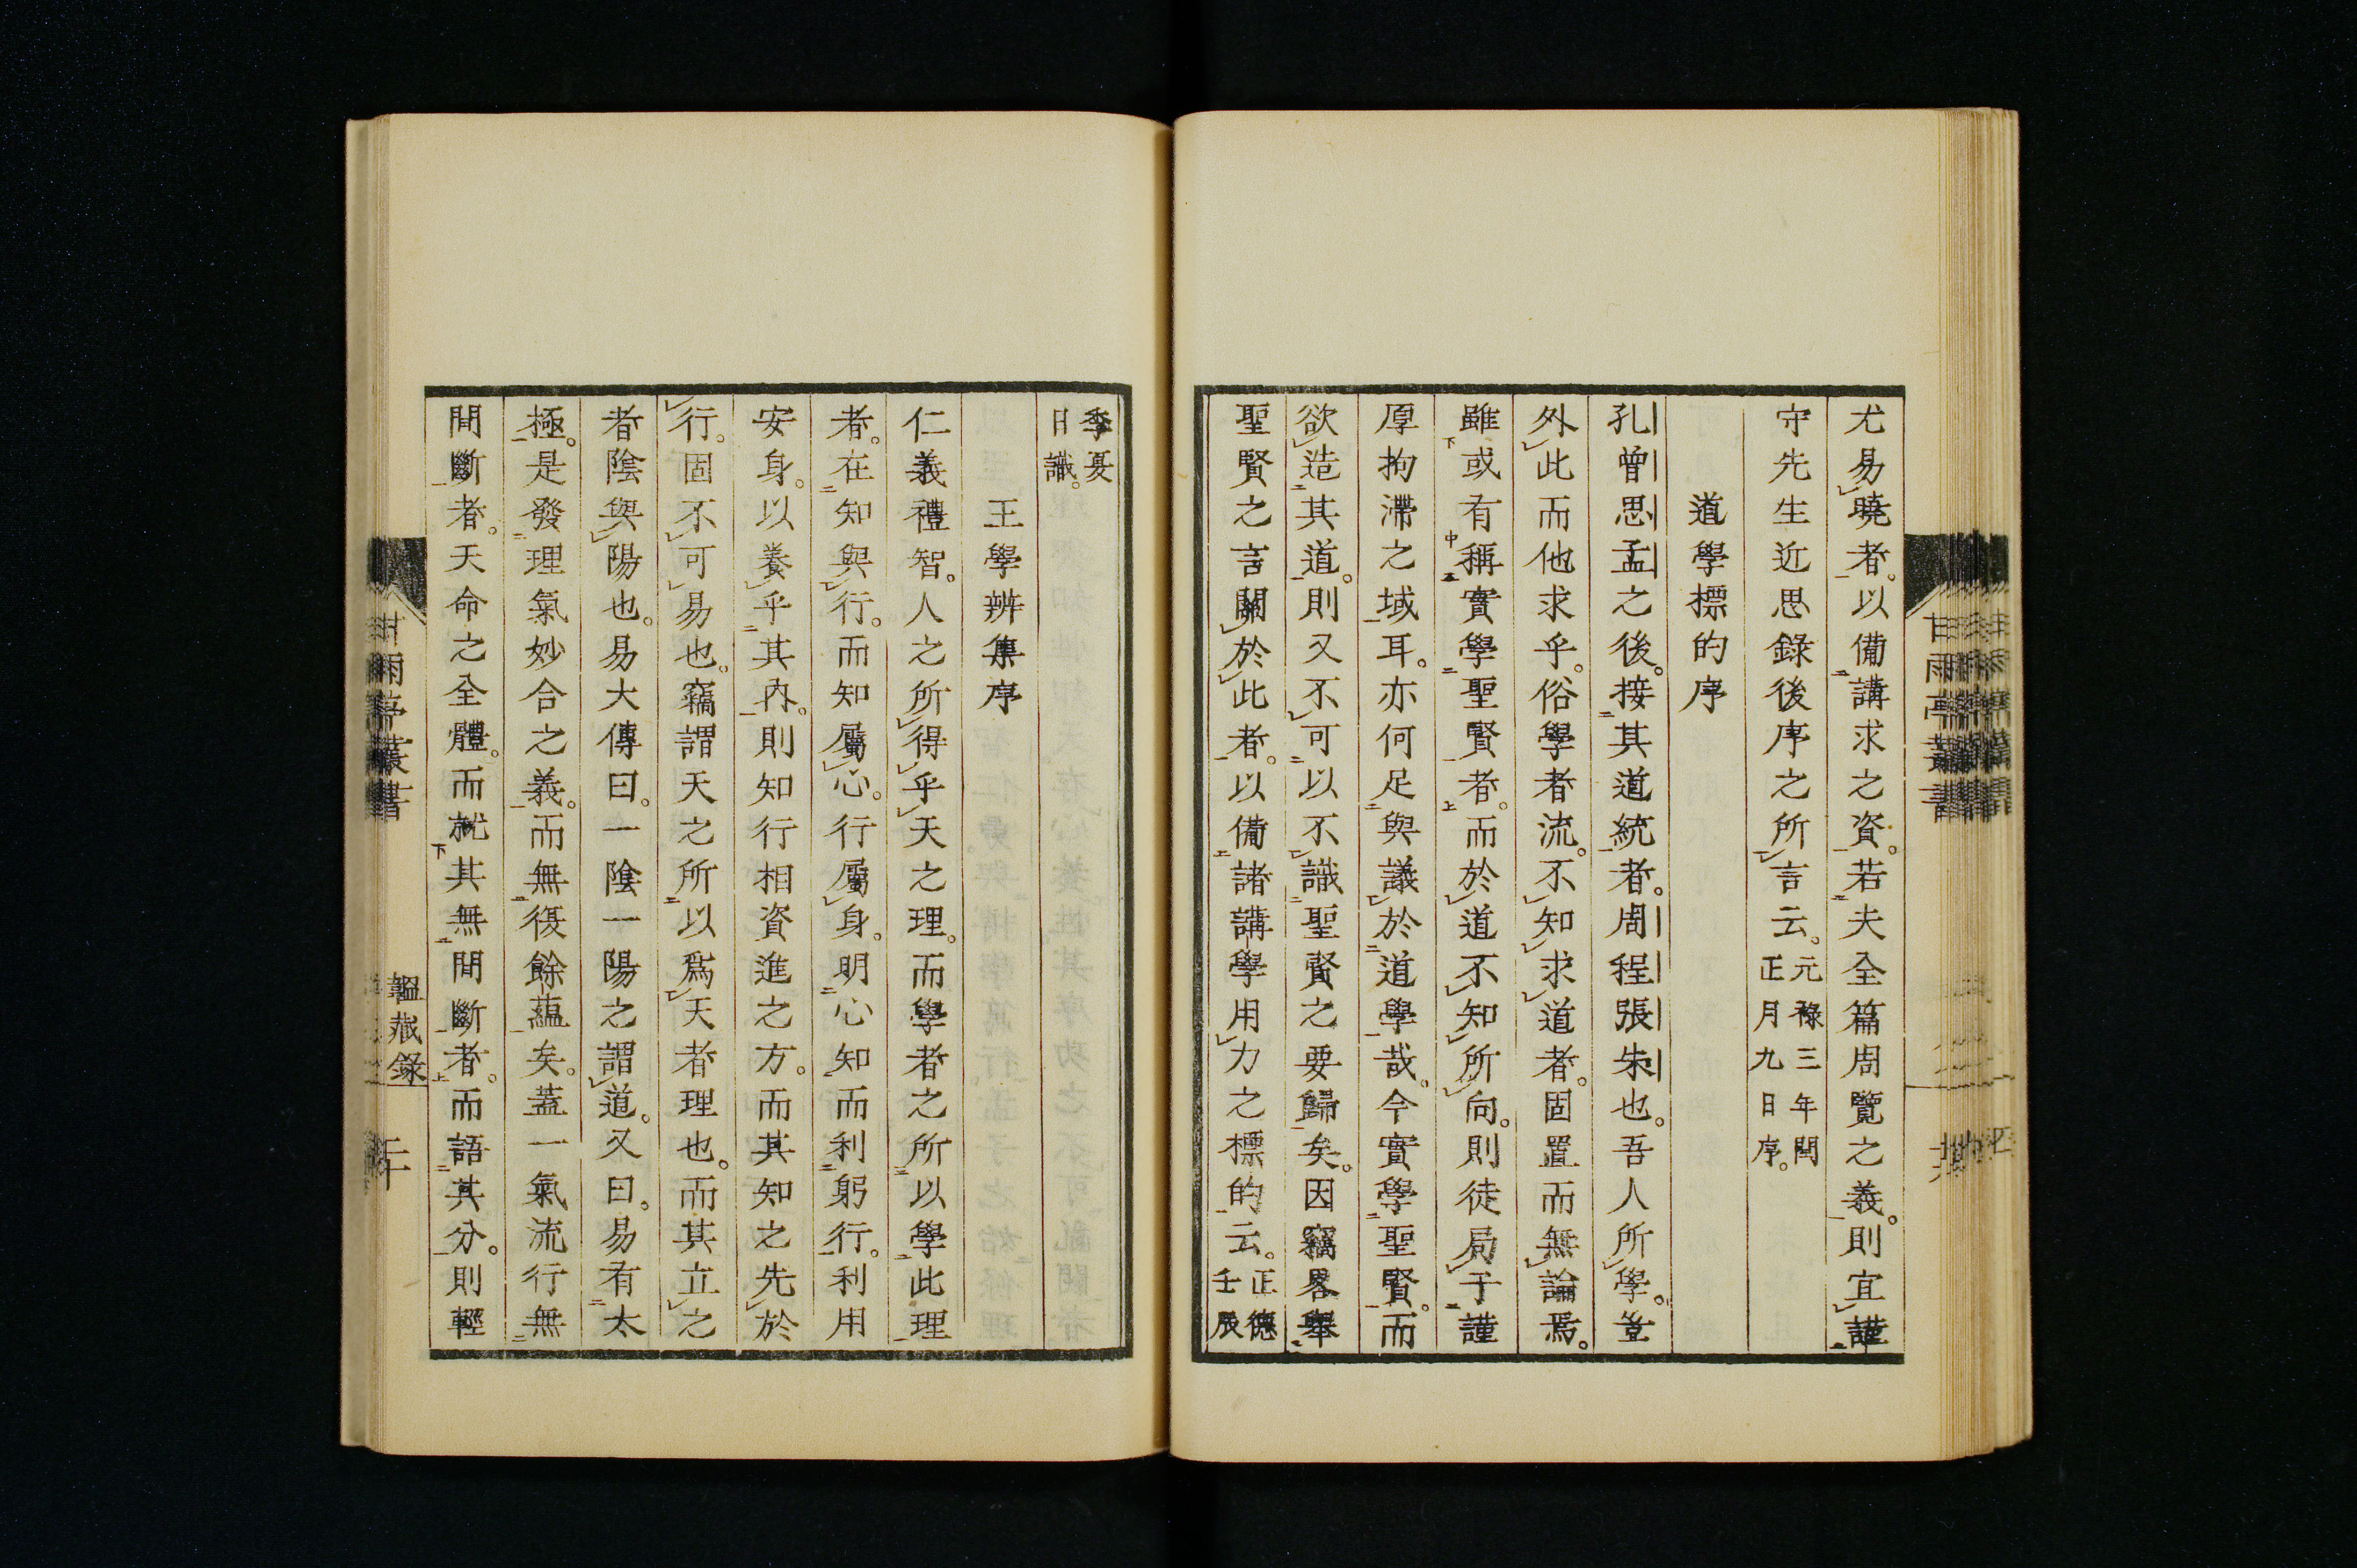 尤易曉者。以備講求之資。若夫全篇周覽之義。則宜謹
守先生近思錄後序之所言云。元祿三年閏正月九日序。
道學標的序
孔曾思孟之後。接其道統者。周程張朱也。吾人所學。豈
外此而他求乎。俗學者流。不知求道者。固置而無論焉。
雖或有稱實學聖賢者。而於道不知所向。則徒局于謹
厚拘滯之域耳。亦何足與議於道學哉。今實學聖賢。而
欲造其道。則又不可以不識聖賢之要歸矣。因竊畧舉
聖賢之言關於此者。以備諸講學用力之標的云。正德壬辰
季夏日識。
王學辨集序
仁義禮智。人之所得乎天之理。而學者之所以學此理
者。在知與行。而知屬心。行屬身。明心知而利躬行。利用
安身。以養乎其內。則知行相資進之方。而其知之先於
行。固不可易也。竊謂天之所以爲天者理也。而其立之
者陰與陽也。易大傳曰。一陰一陽之謂道。又曰。易有太
極。是發理氣妙合之義。而無復餘蘊矣。蓋一氣流行無
間斷者。天命之全體。而就其無間斷者。而語其分。則輕
甘雨亭叢書
韞藏錄
甘雨亭叢書